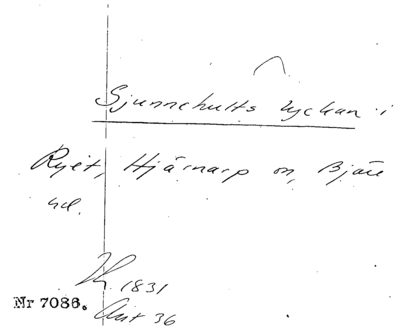 Sjunnehults lyckan i
Ryet, Hjärnarp sn, Bjäre
hd.
1831
Akt 36
Nr 7086.